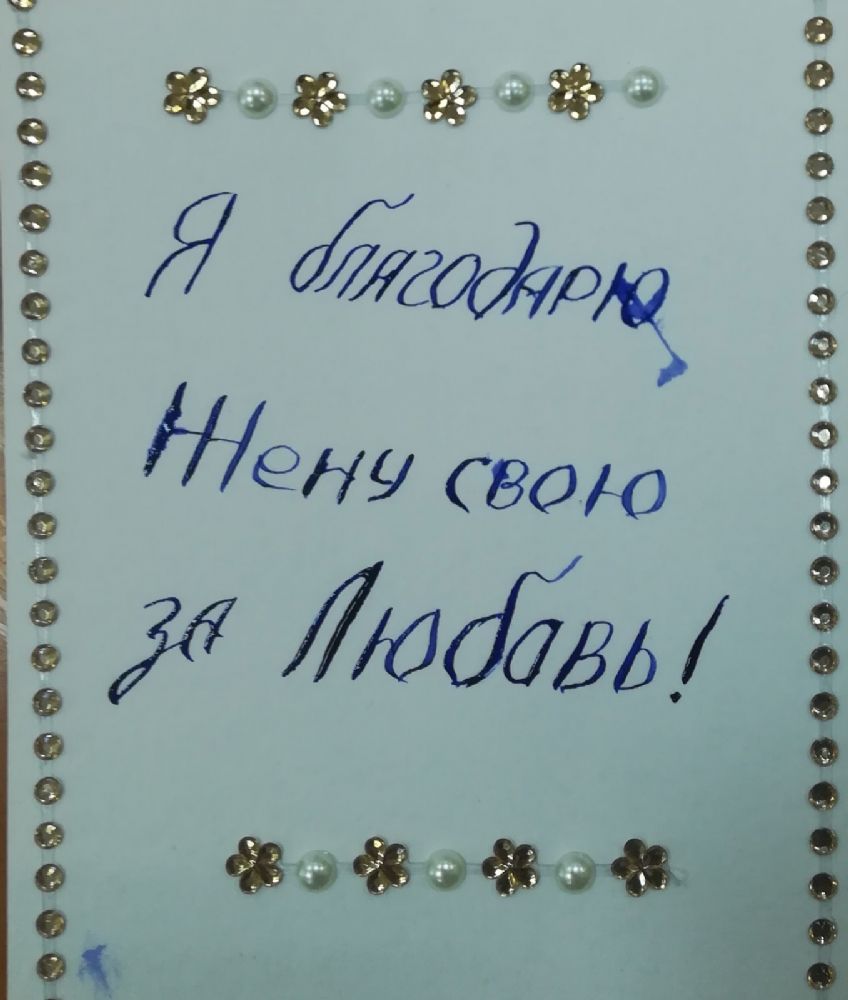 Я благодарю
Жену свою
за Любавь!